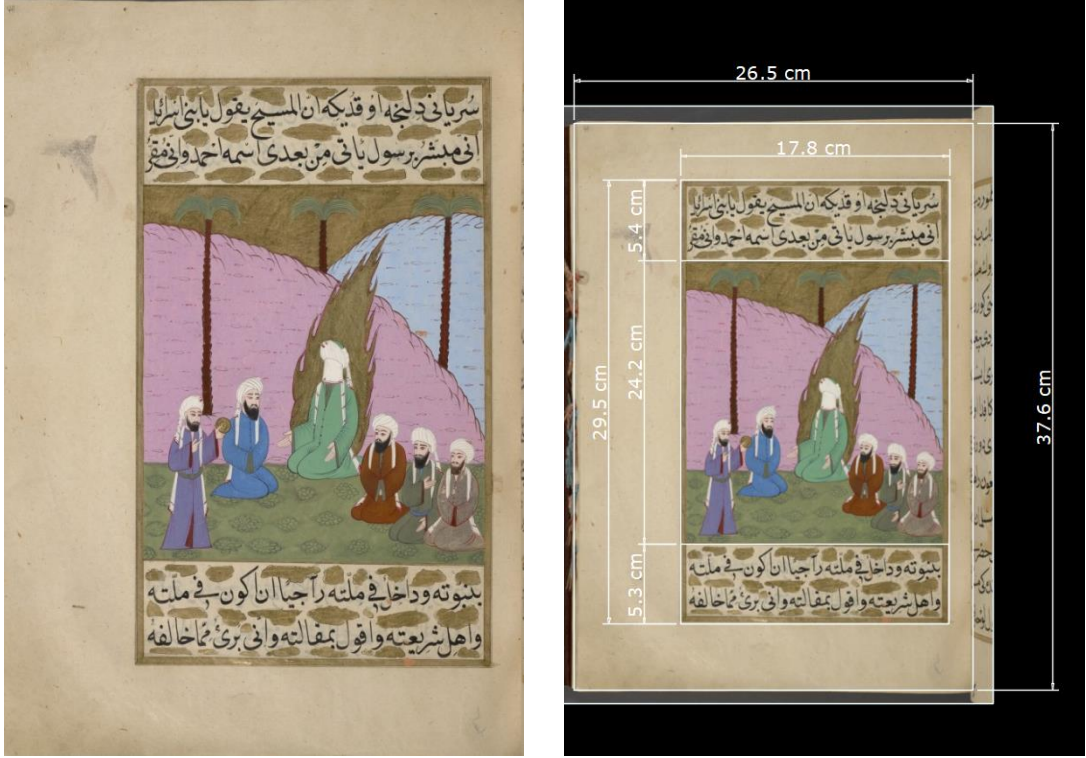 سُريانى دلنجه اوقديكه ان المسيح يقول يابنى اسرائيل
انى مبشر برسول ياتى مِن بعدى اسمه احمد وانى مقر
بنبوته وداخل فى ملته رآجيًا ان اكون فى ملته
واهل شريعته واقول بمقالته وانى برئ مما خالفه
26.5 cm
17.8 cm
5.4 cm
سُريانى دلنجه اوقديكه ان المسيح يقول يابنى اسرائيل
انى مبشر برسول ياتى مِن بعدى اسمه احمد وانى مقر
24.2 cm
29.5 cm
37.6 cm
5.3 cm
بنبوته وداخل فى ملته رآجيًا ان اكون فى ملته
واهل شريعته واقول بمقالته وانى برئ مما خالفه